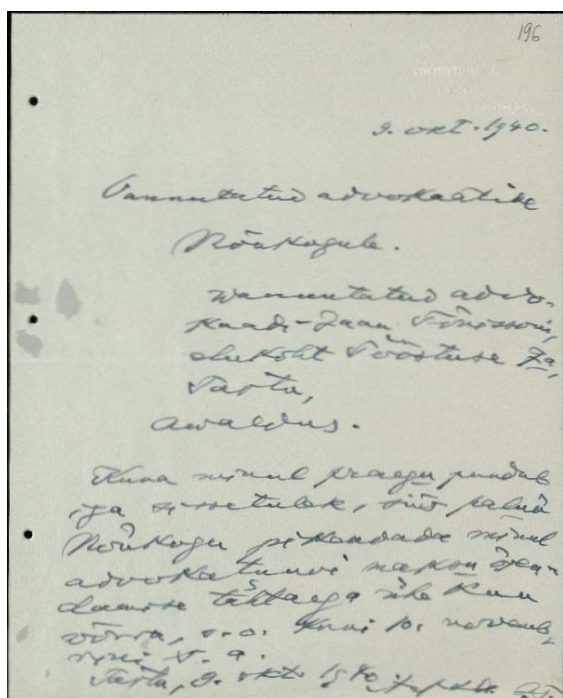 196
9. okt. 1940.
Vannutatud advokaatide
Nõukogule.
Wannutatud advo-
kaadi Jaan Tõnissoni,
elukoht Tööstuse 7a,
Tartu,
awaldus.
Kuna minul praegu puudub
iga sissetulek, siis palun
Nõukogu pikendada minul
advokatuuri maksu õien
damise tähtaega ühe kuu
võrra, s.o. kuni 10. novemb-
rini s. a.
Tartu, 9. okt. 1940